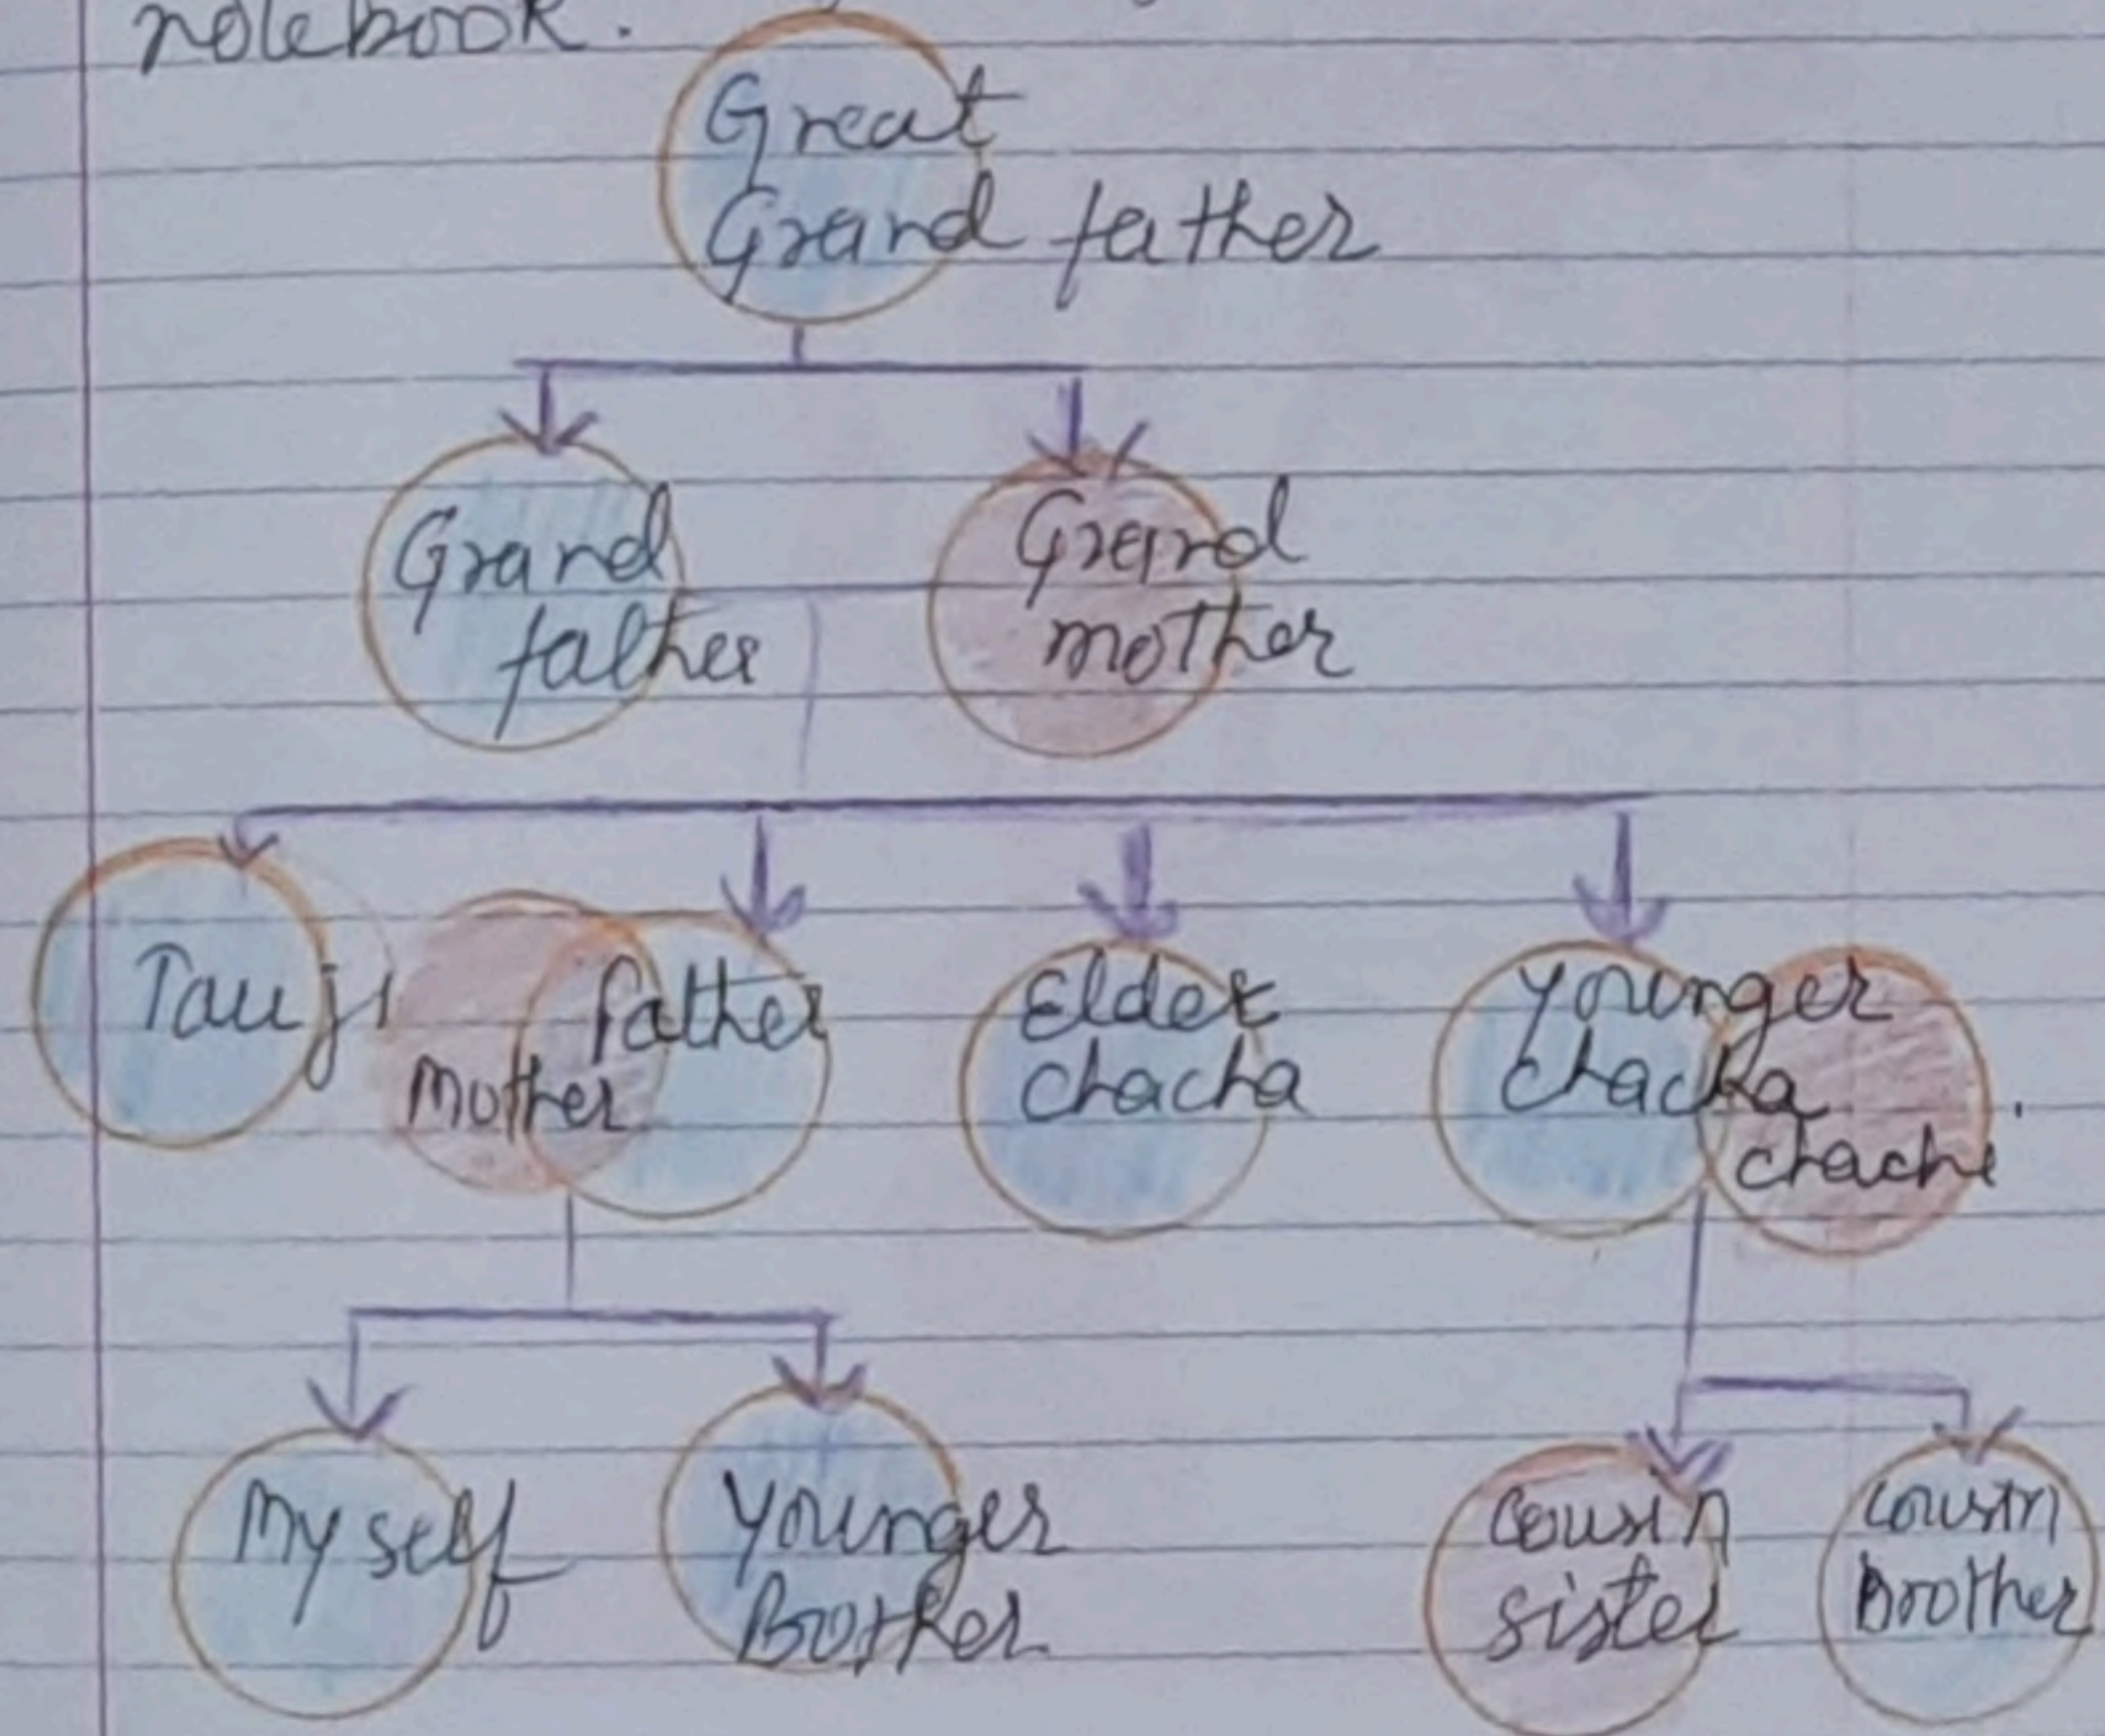 notebook.
Great
Grand father
Grand
father
Grand
mother
Tauji
Mother
father
Elder
chacha
Younger
chacha
chachi
My self
Younger
Brother
Cousin
sister
cousin
Brother